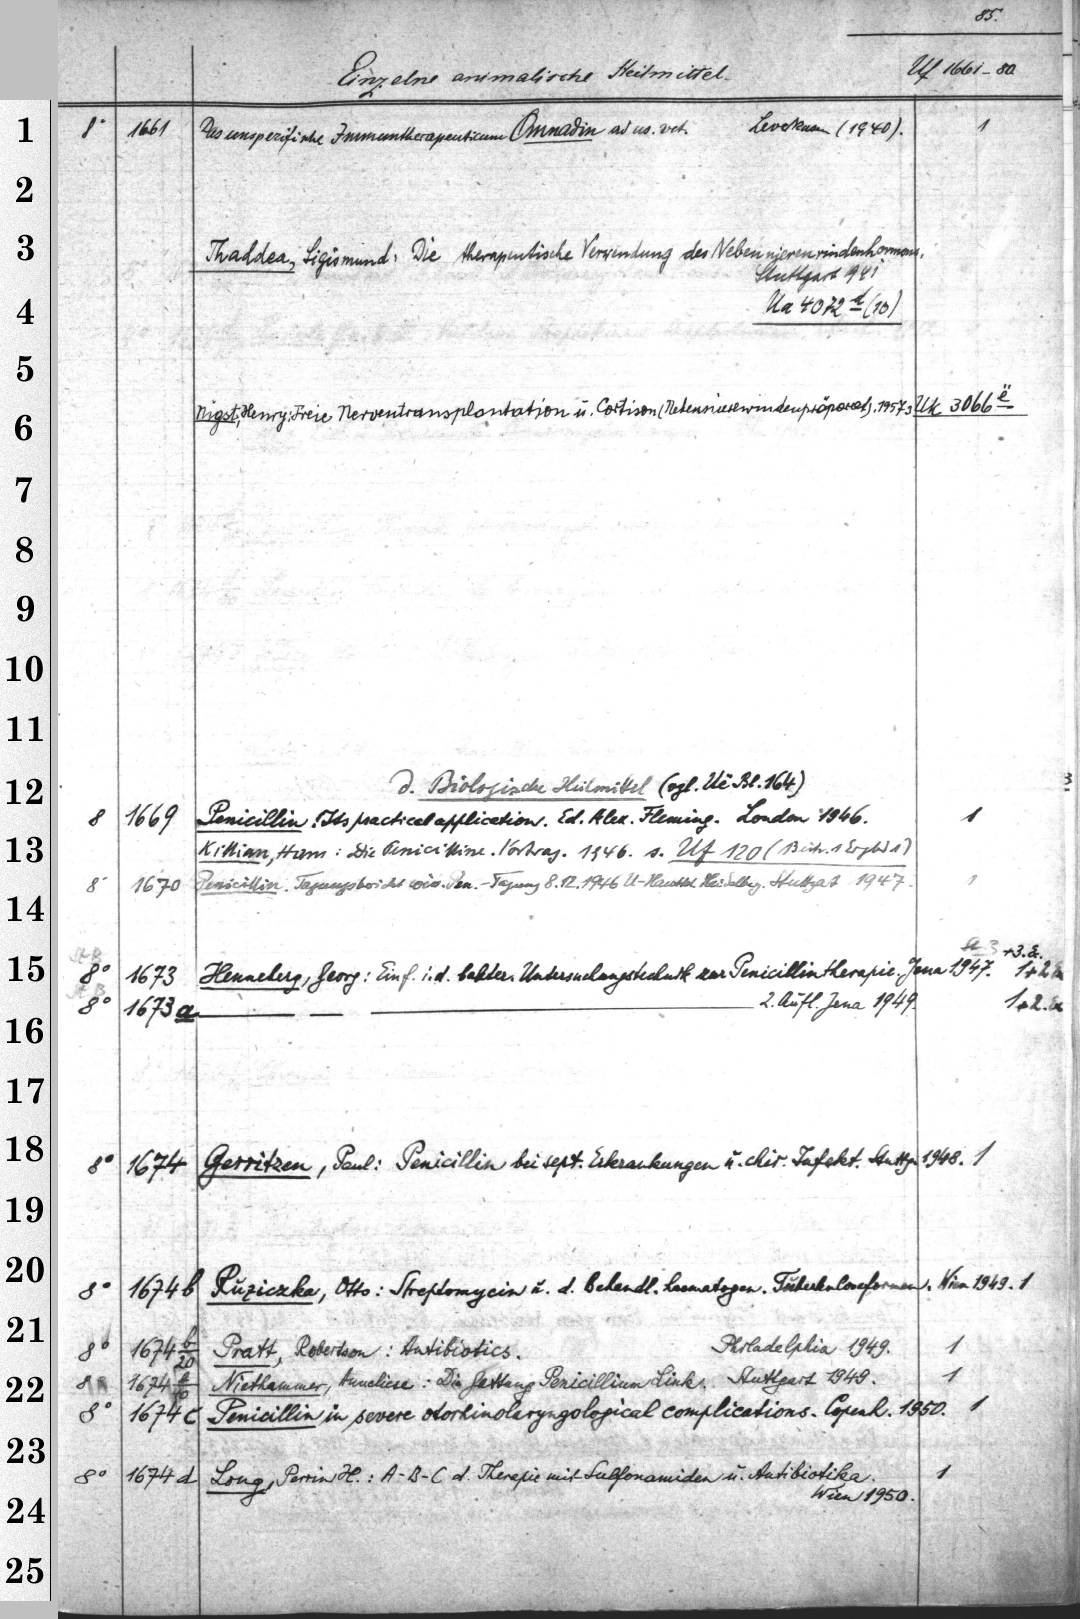 85.
Einzelne animalische Heilmittel. Uf 1661-80
1 8° 1661 Das unspezifische Immuntherapeuticum Omnadin ad us. vet. Leverkusen (1940). 1
2
3 Thaddea, Sigismund: Die therapeutische Verwendung des Nebennierenrindenhormons.
Stuttgart 941
4 Ua 4072 d (10)
5
Nigst, Henry: Freie Nerventransplantation u. Cortison (Nebennierenrindenpräparat). 1957 Uk 3066 ë
6
7
8
9
10
11
12 d. Biologische Heilmittel (vgl. Uë Bl. 164)
8 1669 Penicillin. Its practical application. Ed. Alex. Fleming. London 1946. 1
13 Killian, Hans: Die Penicilline. Vortrag. 1946. s. Uf 120 (Beih. 1
8° 1670 Penicillin. Tagungsbericht Pen.-Tagung 8.12.1946 Heidelbg. Stuttgart 1947. 1
14
+3. Ex.
15 8° 1673 Henneberg, Georg: Einf. i. d. bakter. Untersuchungstechnik zur Penicillintherapie. Jena 1947. 1+2 Ex
8° 1673 a — — — 2. Aufl. Jena 1949. 1+2. Ex
16
17
18 8° 1674 Gerritzen, Paul: Penicillin bei sept. Erkrankungen u. chir. Infekt. Stuttg. 1948. 1
19
20 8° 1674 b Ruziczka, Otto: Streptomycin u. d. Behandl. haematogen. Tuberkuloseformen. Wien 1949. 1
21 8° 1674 b/20 Pratt, Robertson: Antibiotics. Philadelphia 1949. 1
22 8° 1674 Niethammer, Anneliese: Die Gattung Penicillium Link. Stuttgart 1949. 1
8° 1674 c Penicillin in severe otorhinolaryngological complications. Copenh. 1950. 1
23 8° 1674 d Long, Perrin H.: A-B-C d. Therapie mit Sulfonamiden u. Antibiotika. 1
24 Wien 1950.
25